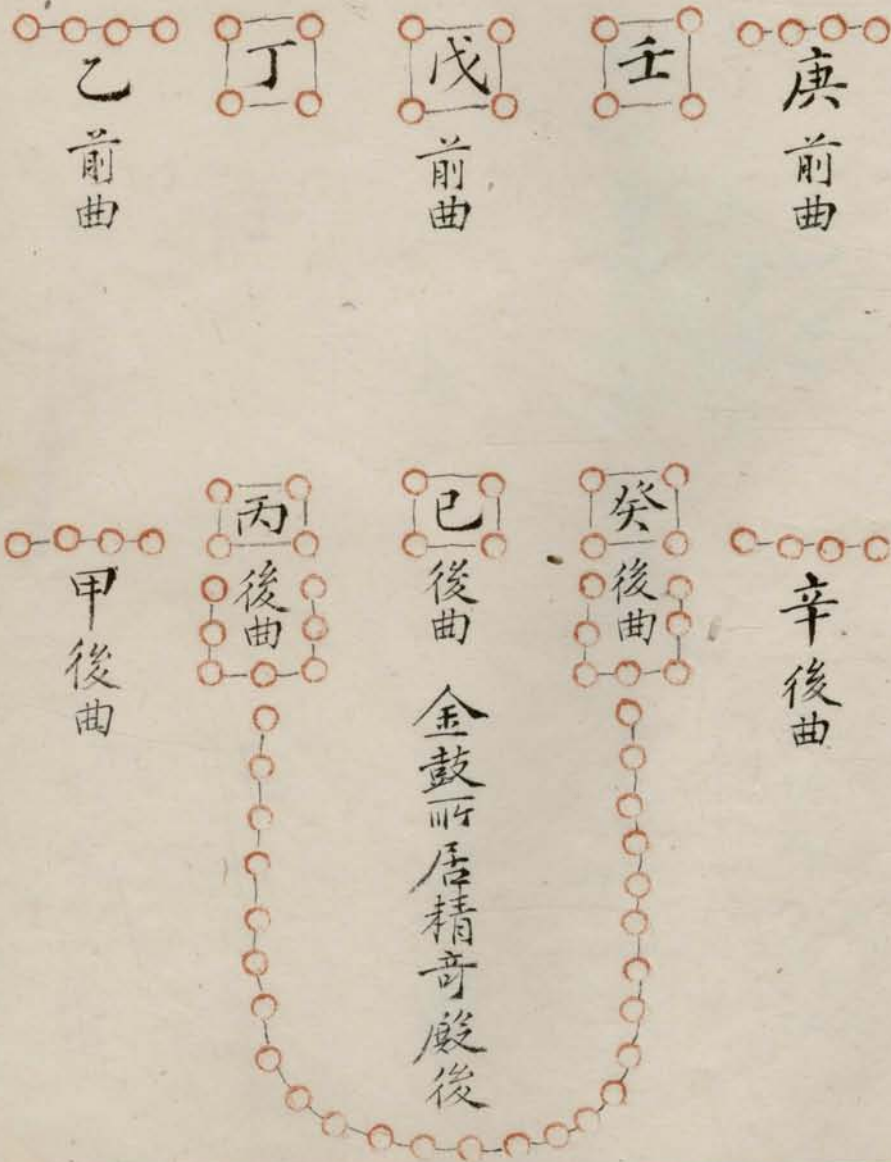 庚前曲
壬
戊前曲
丁
乙前曲
辛後曲
癸後曲
已後曲 金鼓所居精奇殿後
丙後曲
甲後曲